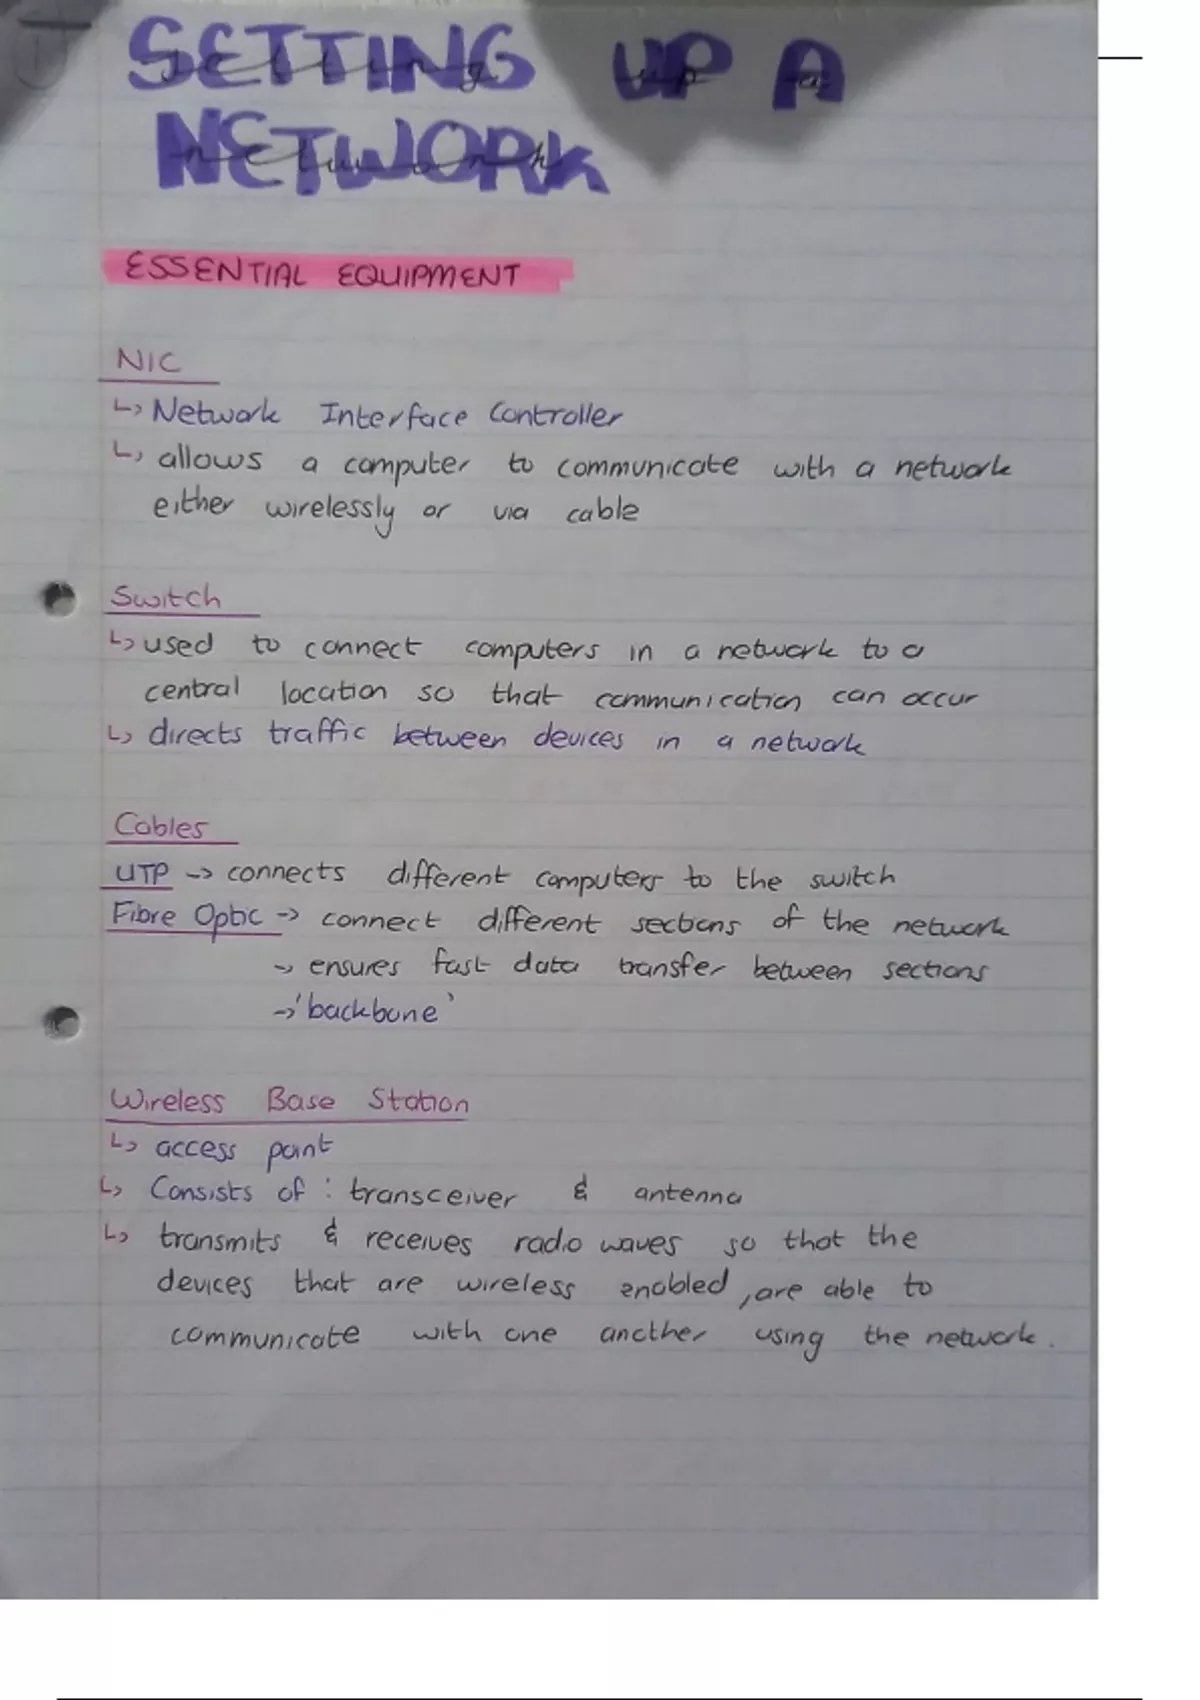 SETTING UP A
NETWORK
ESSENTIAL EQUIPMENT
NIC
↳ Network Interface Controller
↳ allows a computer to communicate with a network
either wirelessly or via cable
Switch
↳ used to connect computers in a network to a
central location so that communication can occur
↳ directs traffic between devices in a network
Cables
UTP -> connects different computers to the switch
Fibre Optic -> connect different sections of the network
-> ensures fast data transfer between sections
-> 'backbone'
Wireless Base Station
↳ access point
↳ Consists of : transceiver & antenna
↳ transmits & receives radio waves so that the
devices that are wireless enabled, are able to
communicate with one another using the network.